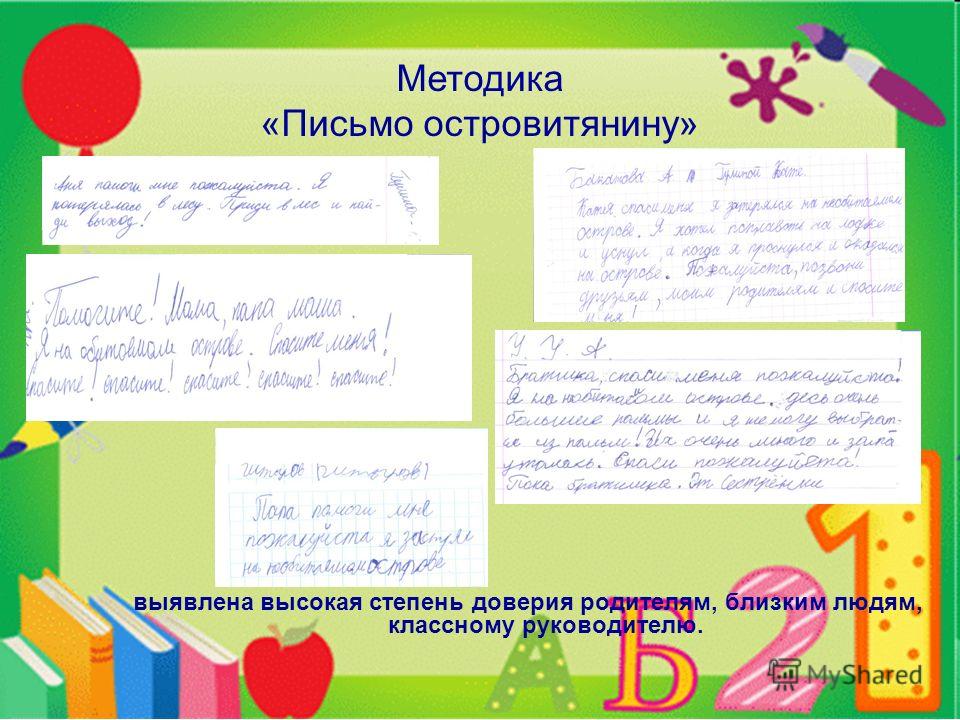 Методика
«Письмо островитянину»
Аня памоги мне пожалуйста. Я
потерялась в лесу. Приди в лес и най-
ди выход!
Помогите! Мама, папа маша.
Я на обитовмам острове. Спасите меня!
спасите! спасите! спасите! спасите! спасите!
Папа памоги мне
пожалуйста я застрял
на необитаемам острове
Катя, спаси меня я затерялся на необитаемом
острове. Я хотел поплавать на лодке
и уснул, а когда я проснулся и оказался
на острове. Пожалуйста, позвони
друзьям, моим родителям и спасите
меня!
У. У. А.
Братика, спаси меня пожалуйста!
Я на необитаем острове. десь очень
большие пальмы и я не могу выбрат-
ся из пальм! Их очень много и запа
уталась. Спаси пожалуйста!
Пока братишка. От Сестрёнки
выявлена высокая степень доверия родителям, близким людям,
классному руководителю.
Б 2 1
MyShared